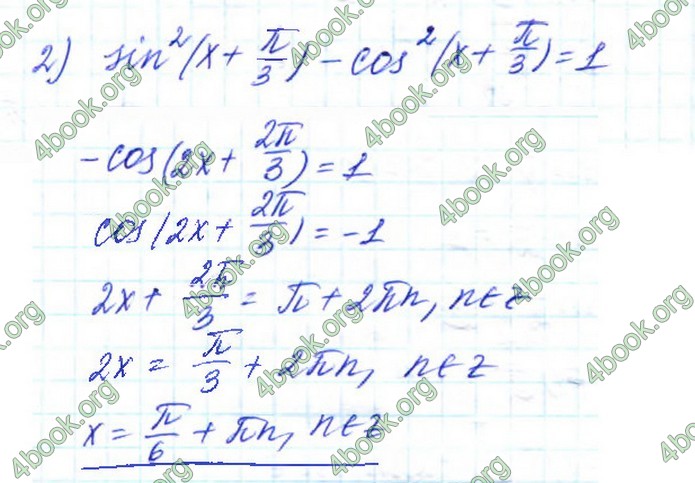 2) sin²(x + π/3) - cos²(x + π/3) = 1
-cos(2x + 2π/3) = 1
cos(2x + 2π/3) = -1
2x + 2π/3 = π + 2πn, n∈z
2x = π/3 + 2πn, n∈z
x = π/6 + πn, n∈z
4book.org
4book.org
4book.org
4book.org
4book.org
4book.org
4book.org
4book.org
4book.org
4book.org
4book.org
4book.org
4book.org
4book.org